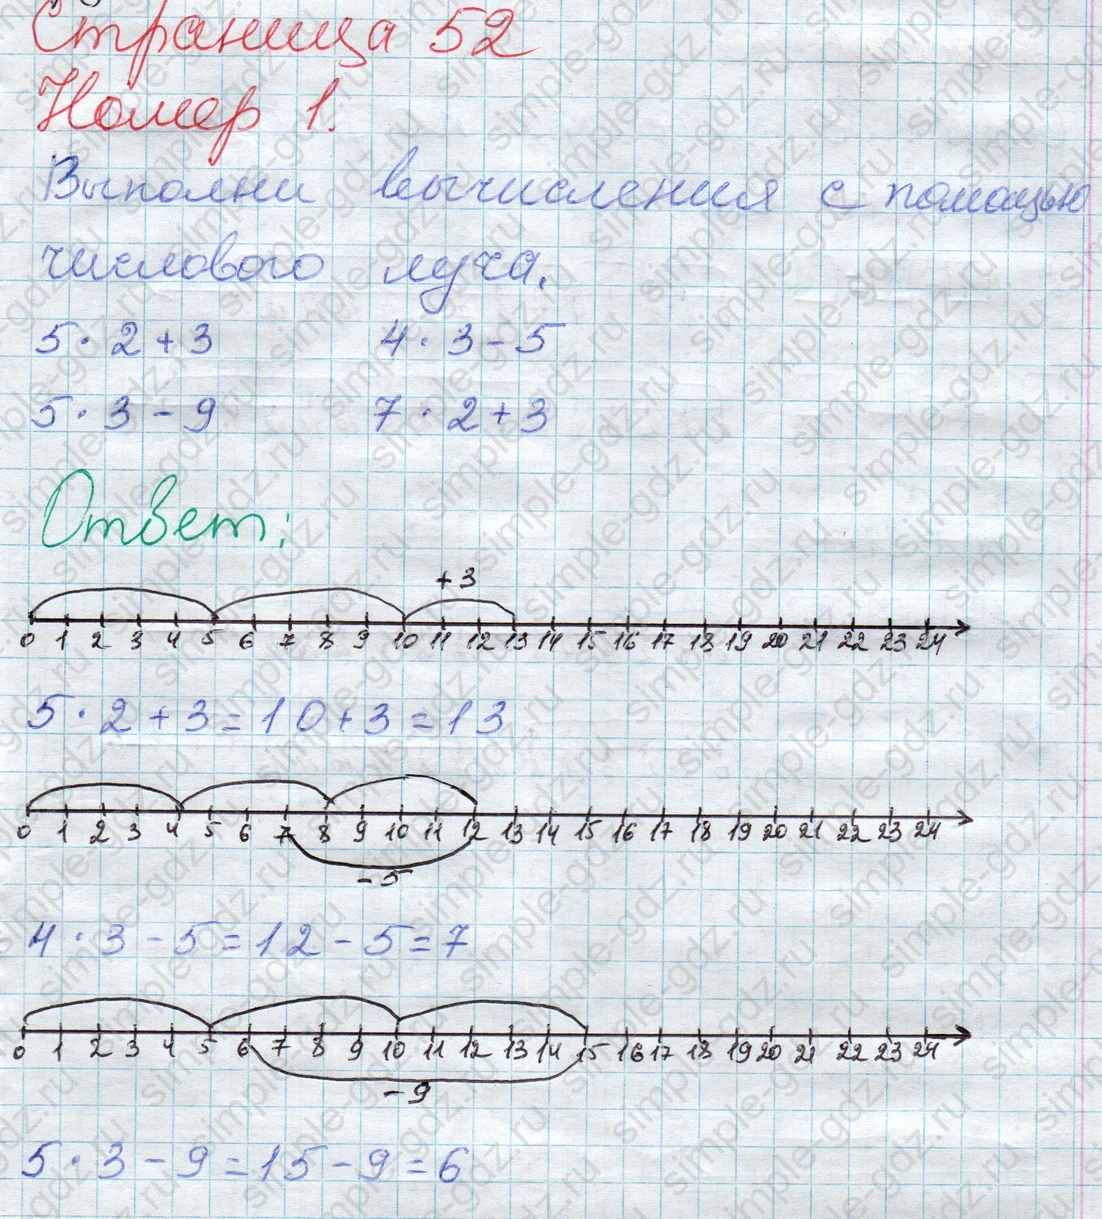 Страница 52
Номер 1.
Выполни вычисления с помощью
числового луча.
5·2+3 4·3-5
5·3-9 7·2+3
Ответ:
+3
0 1 2 3 4 5 6 7 8 9 10 11 12 13 14 15 16 17 18 19 20 21 22 23 24
5·2+3=10+3=13
0 1 2 3 4 5 6 7 8 9 10 11 12 13 14 15 16 17 18 19 20 21 22 23 24
-5
4·3-5=12-5=7
0 1 2 3 4 5 6 7 8 9 10 11 12 13 14 15 16 17 18 19 20 21 22 23 24
-9
5·3-9=15-9=6
simple-gdz.ru